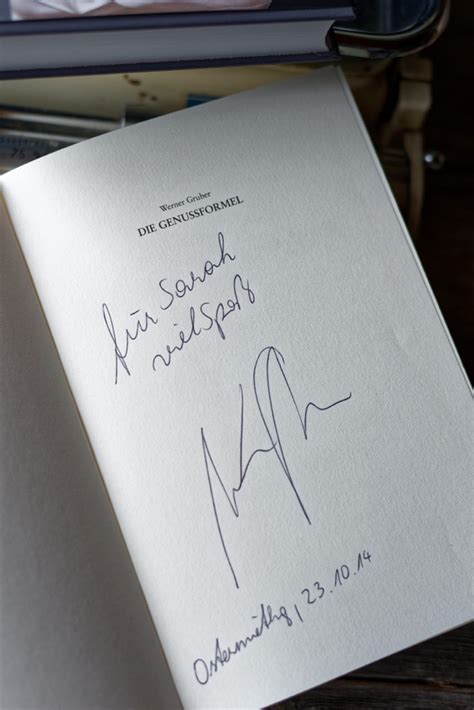 Werner Gruber
DIE GENUSSFORMEL
für Sarah
viel Spaß
Ostermiething, 23.10.14